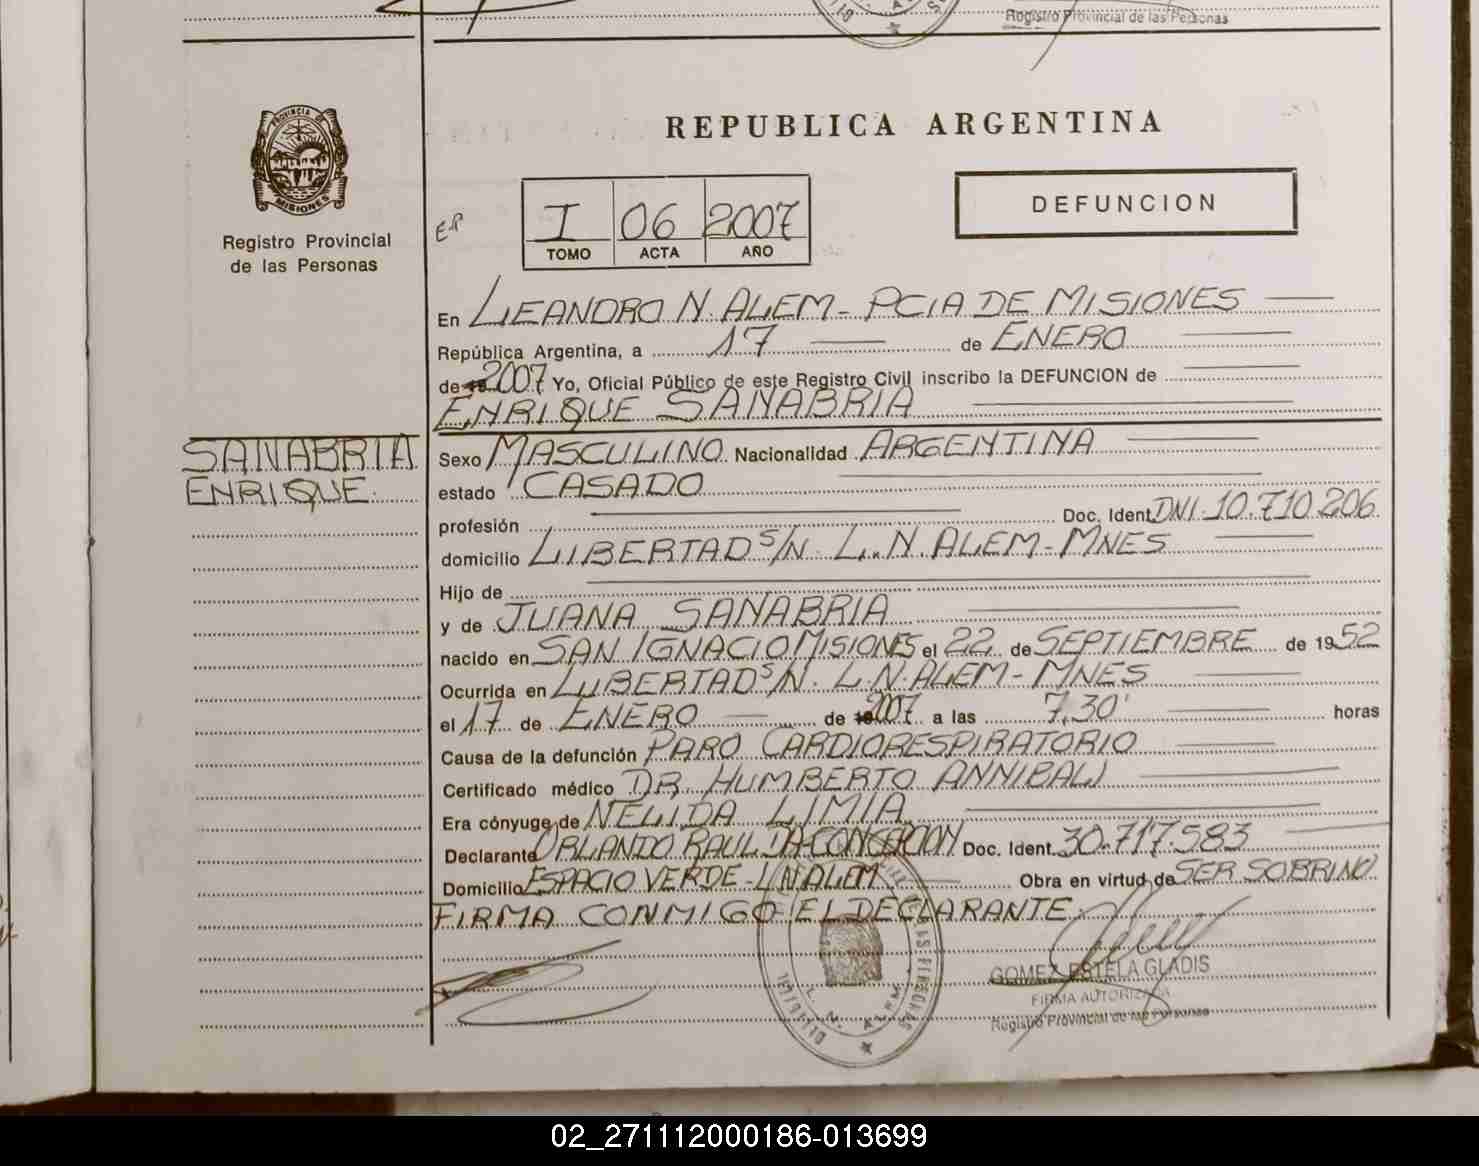 Registro Provincial de las Personas
REPUBLICA ARGENTINA
PROVINCIA DE
MISIONES
Registro Provincial
de las Personas
I 06 2007
TOMO ACTA AÑO
DEFUNCION
En LEANDRO N. ALEM - PCIA DE MISIONES
República Argentina, a 17 de ENERO
de 2007 Yo, Oficial Público de este Registro Civil inscribo la DEFUNCION de
ENRIQUE SANABRIA
SANABRIA
ENRIQUE
Sexo MASCULINO Nacionalidad ARGENTINA
estado CASADO
profesión Doc. Ident. DNI. 10.710.206
domicilio LIBERTAD S/N. L.N. ALEM - MNES
Hijo de
y de JUANA SANABRIA
nacido en SAN IGNACIO MISIONES el 22 de SEPTIEMBRE de 1952
Ocurrida en LIBERTAD S/N. L.N. ALEM - MNES
el 17 de ENERO de 2007 a las 7,30' horas
Causa de la defunción PARO CARDIORESPIRATORIO
Certificado médico DR HUMBERTO ANNIBALI
Era cónyuge de NELIDA LIMIA
Declarante ORLANDO RAUL DA CONCEPCION Doc. Ident. 30.717.583
Domicilio ESPACIO VERDE - L N ALEM Obra en virtud de SER SOBRINO
FIRMA CONMIGO EL DECLARANTE.
GOMEZ ESTELA GLADIS
FIRMA AUTORIZADA
Registro Provincial de las Personas
L. N. ALEM
02_271112000186-013699